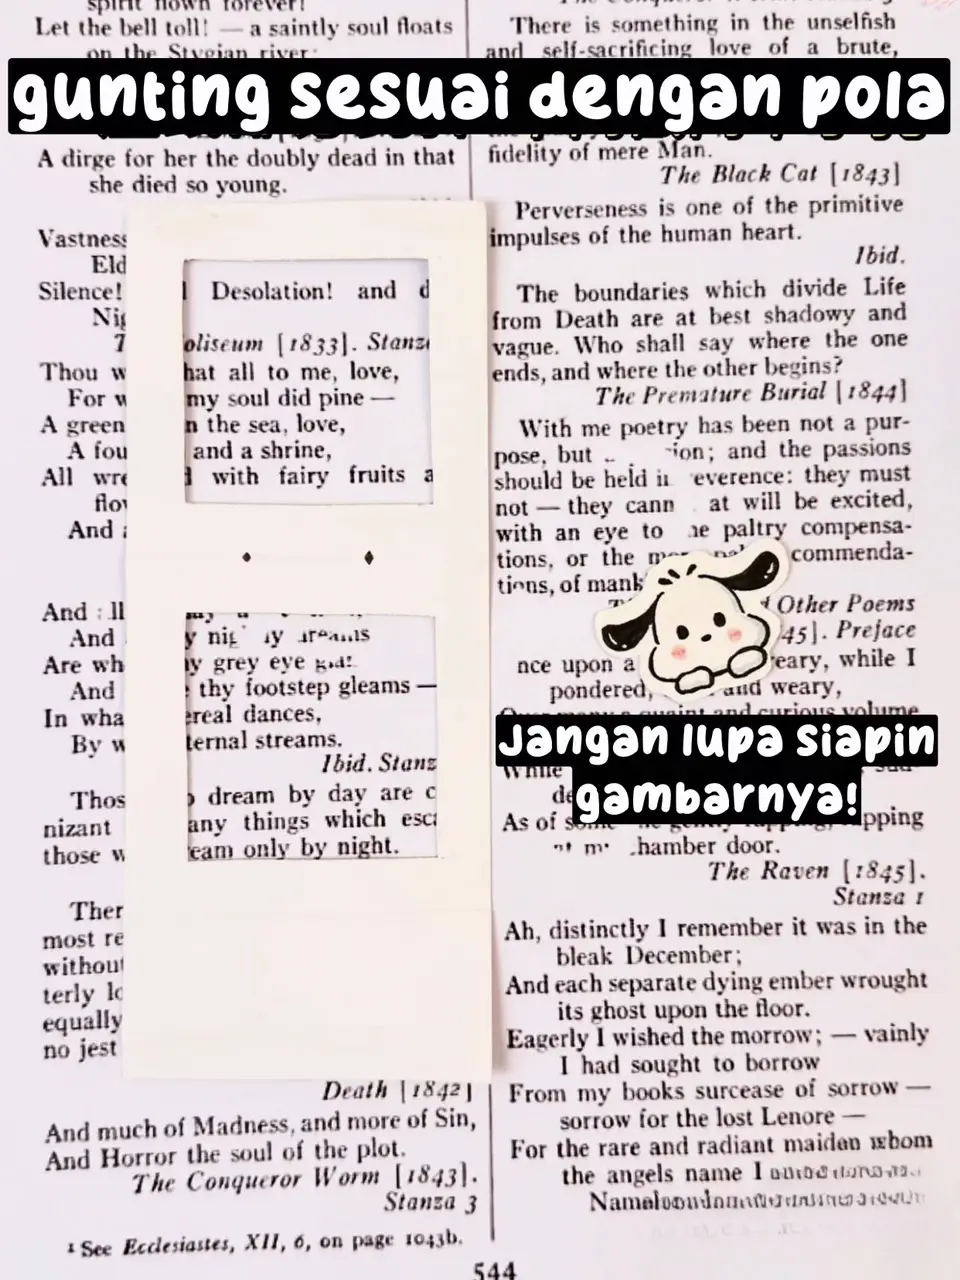 spirit flown forever!
Let the bell toll! — a saintly soul floats
on the Stygian river:
gunting sesuai dengan pola
A dirge for her the doubly dead in that
she died so young.
Vastness
Eld
Silence! Desolation! and d
Nig
oliseum [1833]. Stanz
Thou w hat all to me, love,
For w my soul did pine —
A green n the sea, love,
A fou and a shrine,
All wre d with fairy fruits a
flov
And
And
And y
Are wh y grey eye
And thy footstep gleams —
In wha ereal dances,
By w ternal streams.
Ibid. Stanz
Thos dream by day are c
nizant any things which esc
those w eam only by night.
Ther
most re
without
terly lo
equally
no jest
Death [1842]
And much of Madness, and more of Sin,
And Horror the soul of the plot.
The Conqueror Worm [1843].
Stanza 3
1 See Ecclesiastes, XII, 6, on page 1043b.
There is something in the unselfish
and self-sacrificing love of a brute,
fidelity of mere Man.
The Black Cat [1843]
Perverseness is one of the primitive
impulses of the human heart.
Ibid.
The boundaries which divide Life
from Death are at best shadowy and
vague. Who shall say where the one
ends, and where the other begins?
The Premature Burial [1844]
With me poetry has been not a pur-
pose, but ion; and the passions
should be held everence: they must
not — they cann at will be excited,
with an eye to paltry compensa-
tions, or the commenda-
tions, of mank
Other Poems
45]. Preface
nce upon a reary, while I
pondered, and weary,
Jangan lupa siapin
gambarnya!
While
de
As of pping
hamber door.
The Raven [1845].
Stanza 1
Ah, distinctly I remember it was in the
bleak December;
And each separate dying ember wrought
its ghost upon the floor.
Eagerly I wished the morrow; — vainly
I had sought to borrow
From my books surcease of sorrow —
sorrow for the lost Lenore —
For the rare and radiant maiden whom
the angels name
544